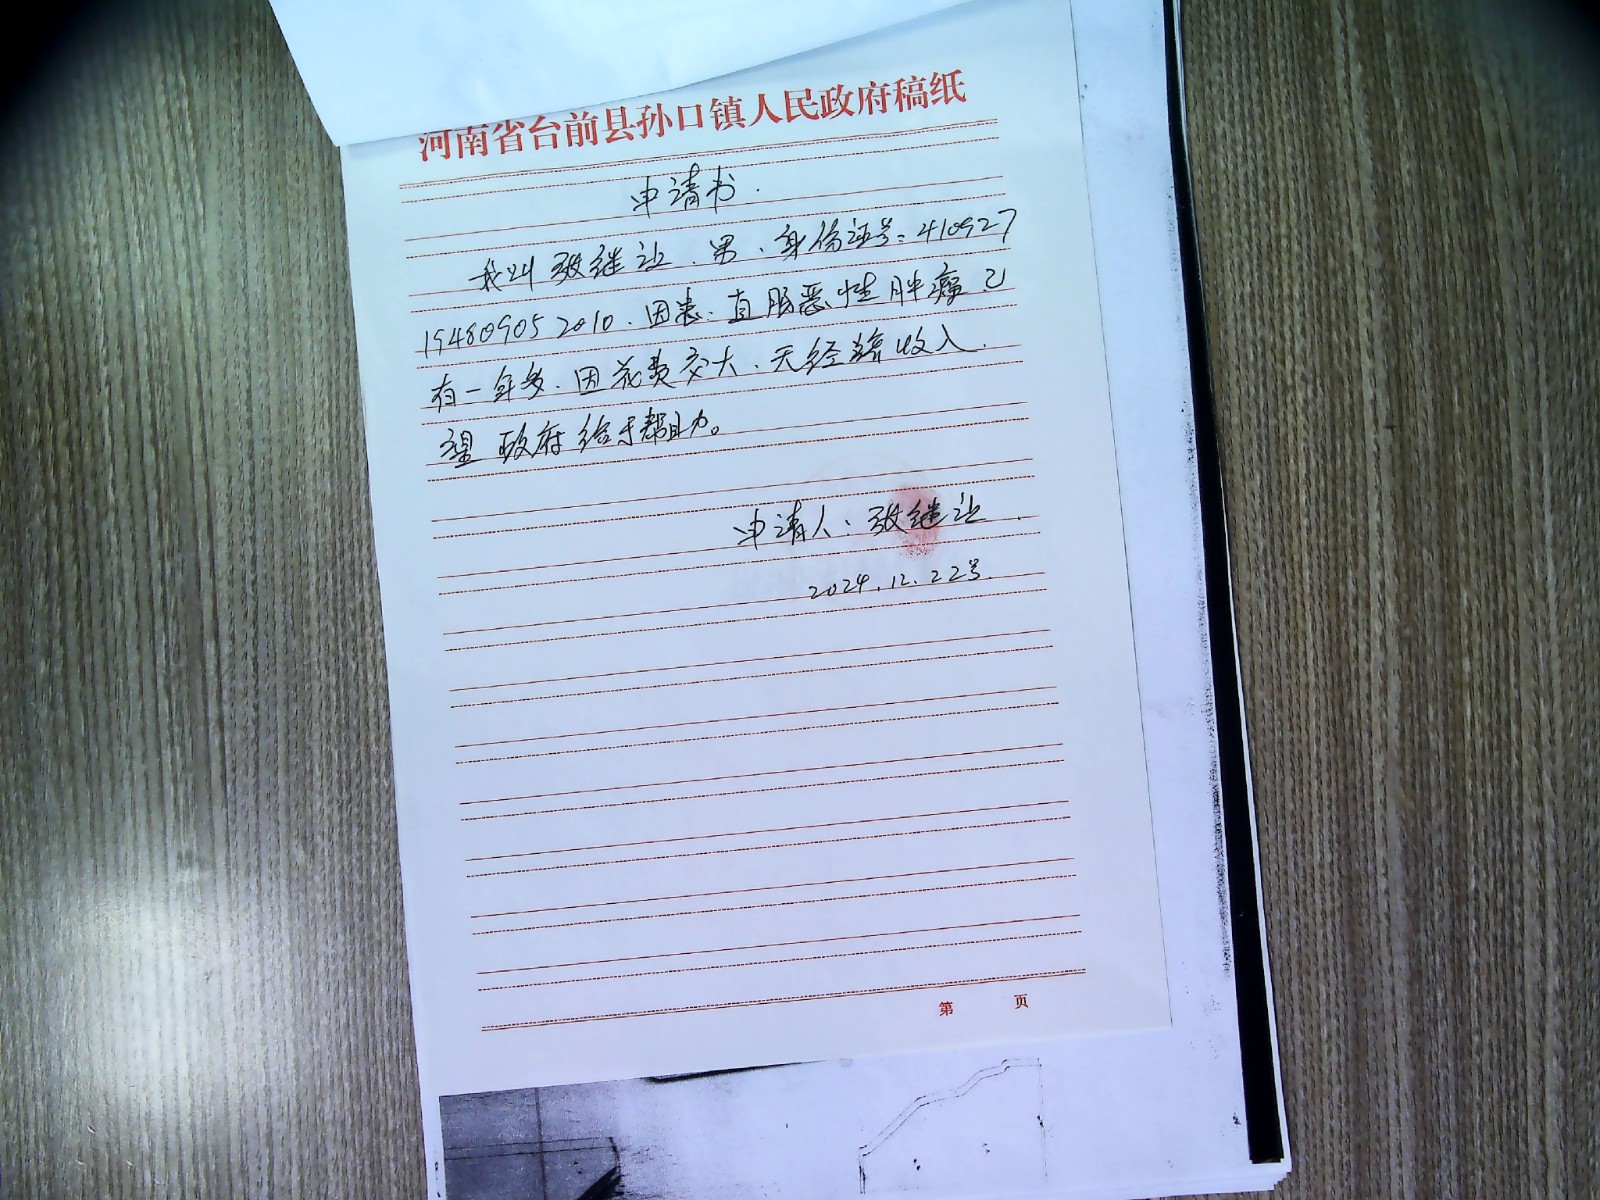 河南省台前县孙口镇人民政府稿纸
申请书.
我叫张继让、男、身份证号:410927
194809052010.因患.直肠恶性肿瘤己
有一年多.因花费交大.无经济收入.
望政府给于帮助。
申请人:张继让.
2024.12.22号.
第 页